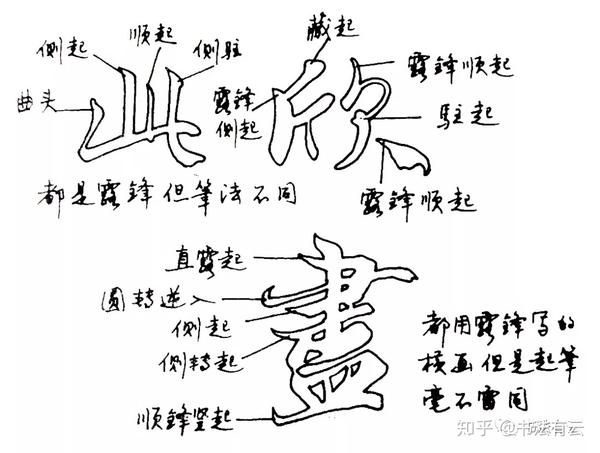 侧起
顺起
侧驻
曲头
都是露鋒但筆法不同
藏起
露鋒顺起
露鋒
侧起
驻起
露鋒顺起
直露起
圆转逆入
侧起
侧转起
顺鋒竖起
畫
都用露鋒写的
横画但是起筆
毫不雷同
知乎 @书法有云